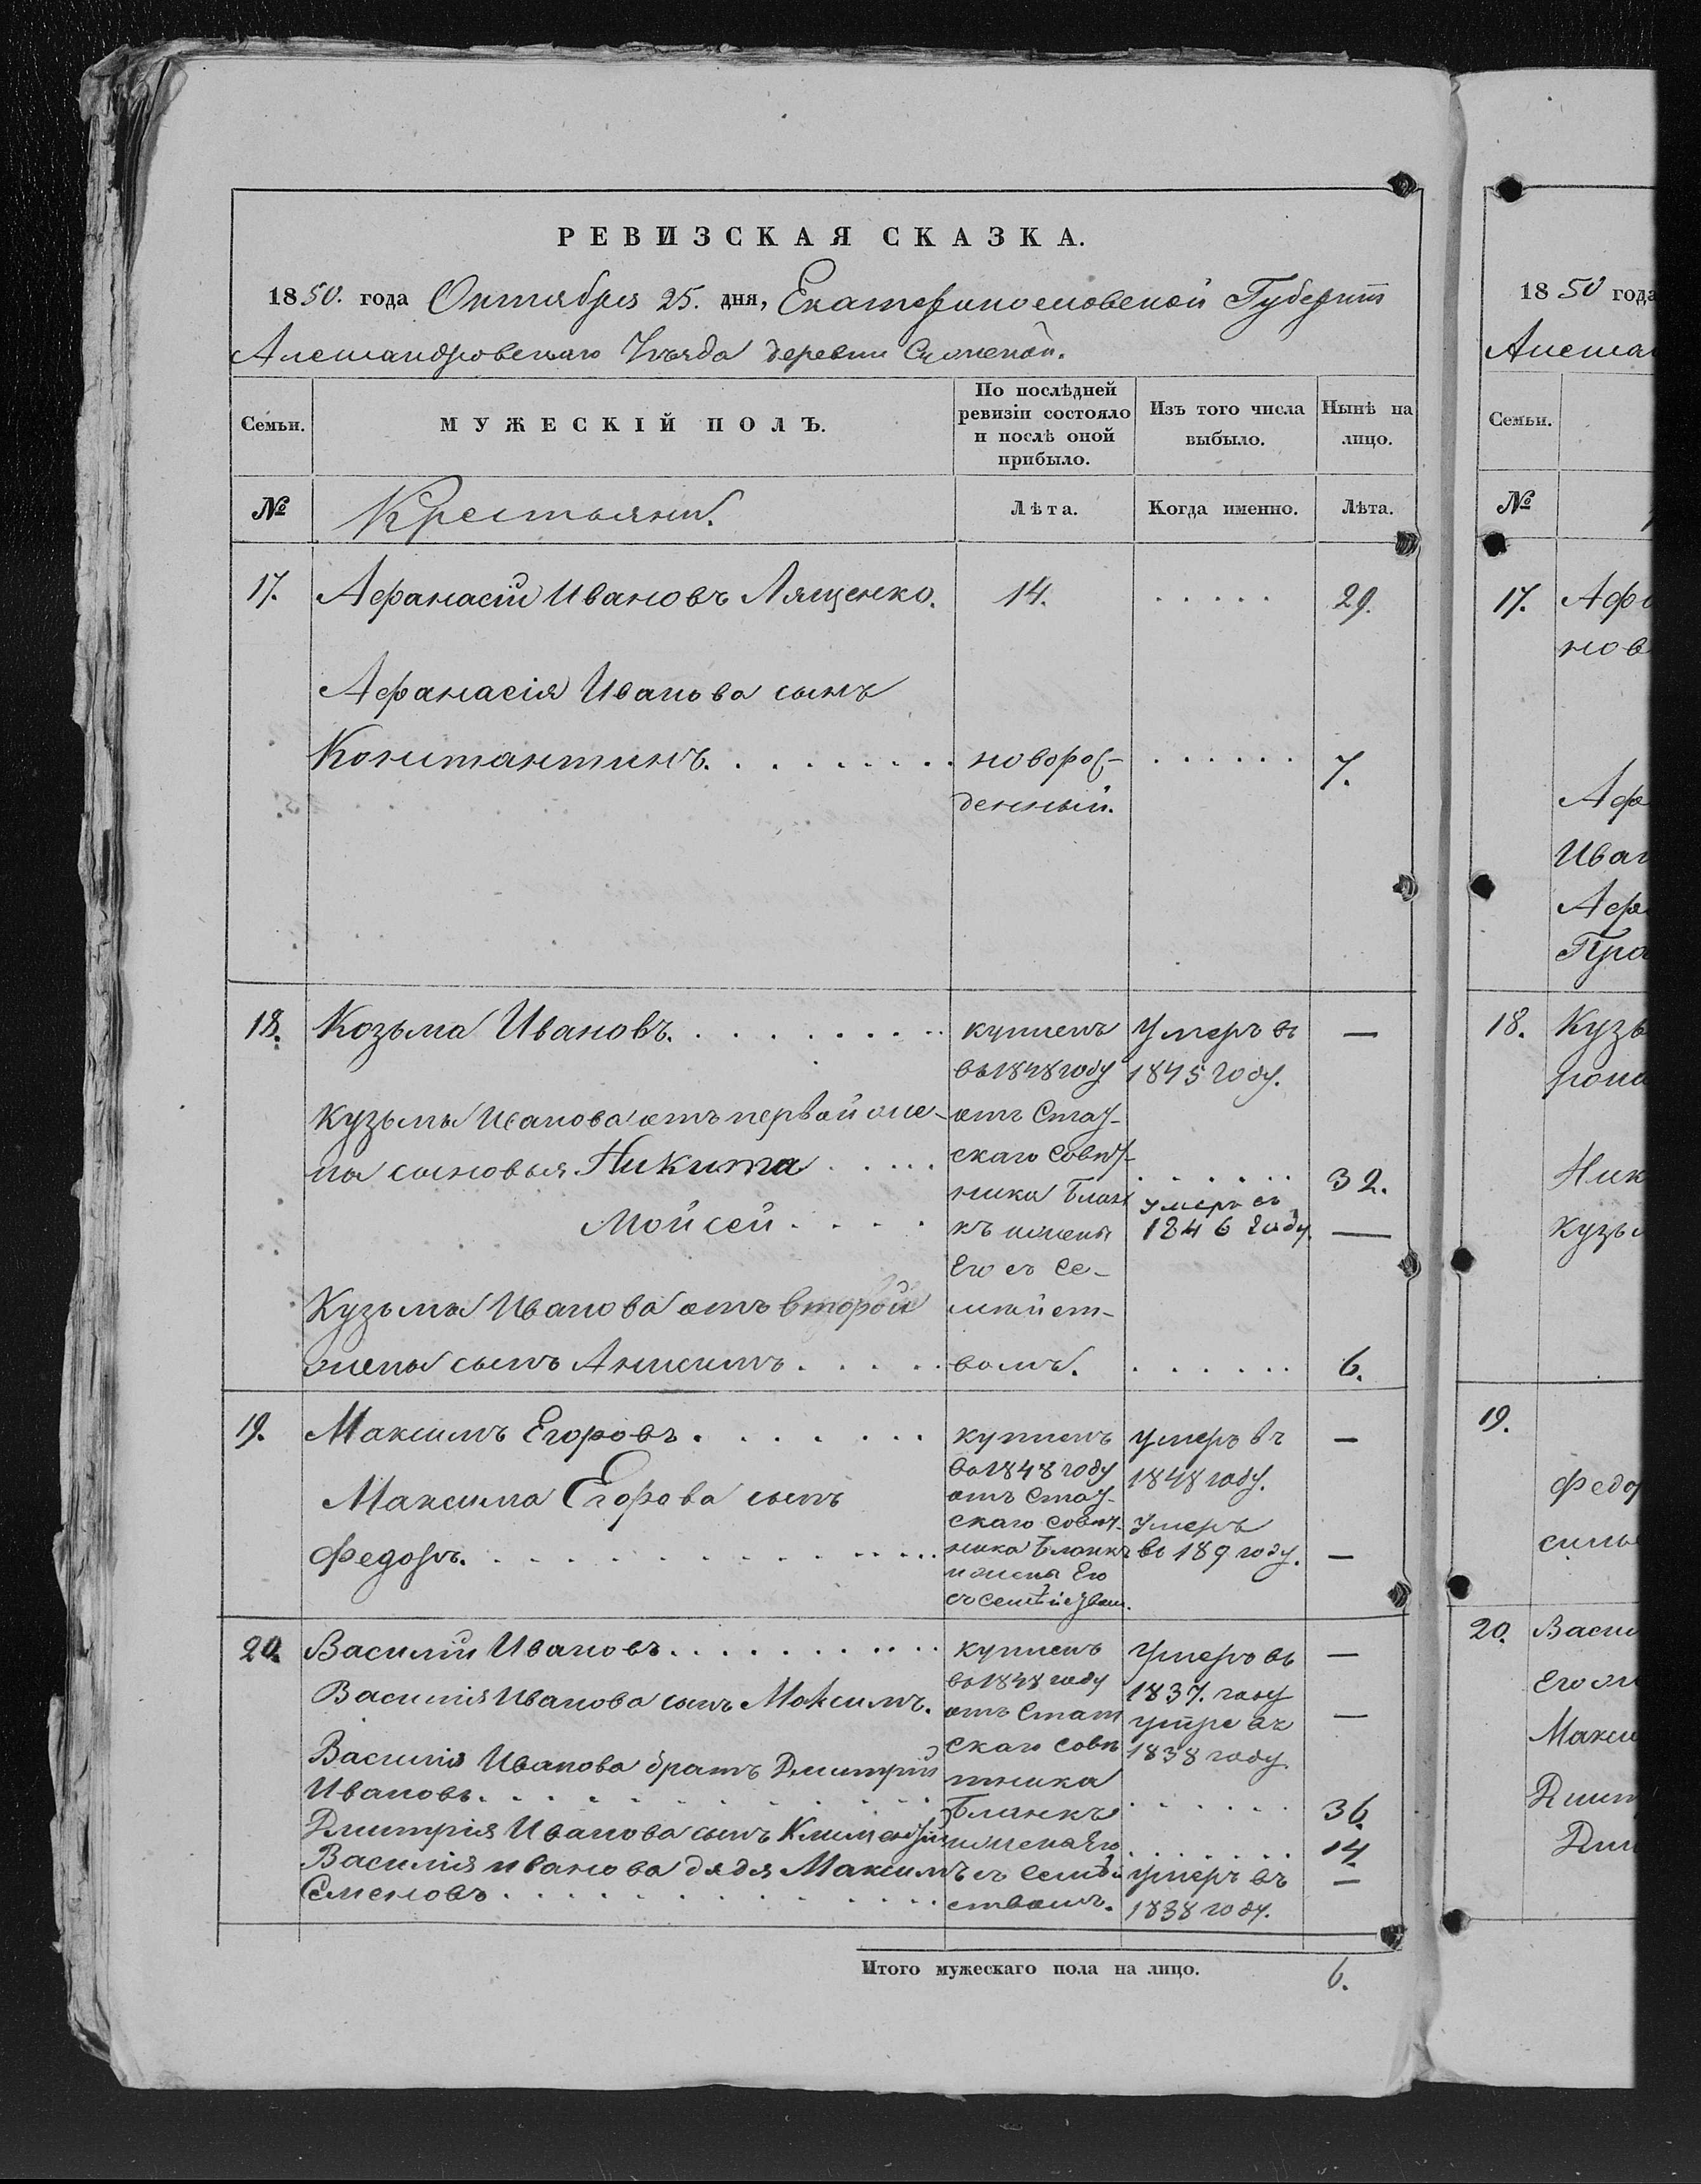 РЕВИЗСКАЯ СКАЗКА.
1850. года Октября 25. дня, Екатеринославской Губерніи
Александровскаго Уѣзда деревни
Семьи.
МУЖЕСКІЙ ПОЛЪ.
По послѣдней ревизіи состояло и послѣ оной прибыло.
Изъ того числа выбыло.
Нынѣ на лицо.
№
Крестьяни.
Лѣта.
Когда именно.
Лѣта.
17. Афанасій Ивановъ Лященко. 14. . . . . . 29.
Афанасія Иванова сынъ
Константинъ. . . . . . . . . новорож- . . . . . . 7.
денный.
18. Козьма Ивановъ. . . . . . . . . купленъ Умеръ въ —
въ 1848 году 1845 году.
Кузьмы Иванова отъ первой же- отъ Стат-
ны сыновья Никита . . . . . скаго Совѣт- . . . . . . 32.
ника Бланк умеръ въ
Мойсей . . . . къ жены 1846 году. —
Его съ Се-
Кузьмы Иванова отъ второй мѣйст-
жены сынъ Анисимъ . . . . . вомъ. . . . . . . 6.
19. Максимъ Егоровъ . . . . . . . купленъ умеръ въ —
въ 1848 году 1848 году.
Максима Егорова сынъ отъ Стат-
скаго Совѣт- Умеръ
Федоръ. . . . . . . . . . . . ника Бланкъ въ 189 году. —
жены Его
съ Семѣйством.
20. Василій Ивановъ. . . . . . . . . купленъ Умеръ въ —
въ 1848 году 1837. году
Василія Иванова сынъ Максимъ. отъ Стат умре въ —
скаго Совѣ 1838 году
Василія Иванова братъ Дмитрій тника
Ивановъ. . . . . . . . . . . Бланкъ . . . . . . 36.
Дмитрія Иванова сынъ Климентій жены Его . . . . . . 14.
Василія Иванова дядя Максимъ съ Семѣй умеръ въ —
Семеновъ . . . . . . . . . . ствомъ. 1838 году.
Итого мужескаго пола на лицо. 6.
18 50 года
Семьи.
№
17. Афа
нов
Афа
Иван
Афа
Пра
18. Кузь
Ник
Кузь
19.
Федо
20. Васи
Его
Макси
Дмит
Дми